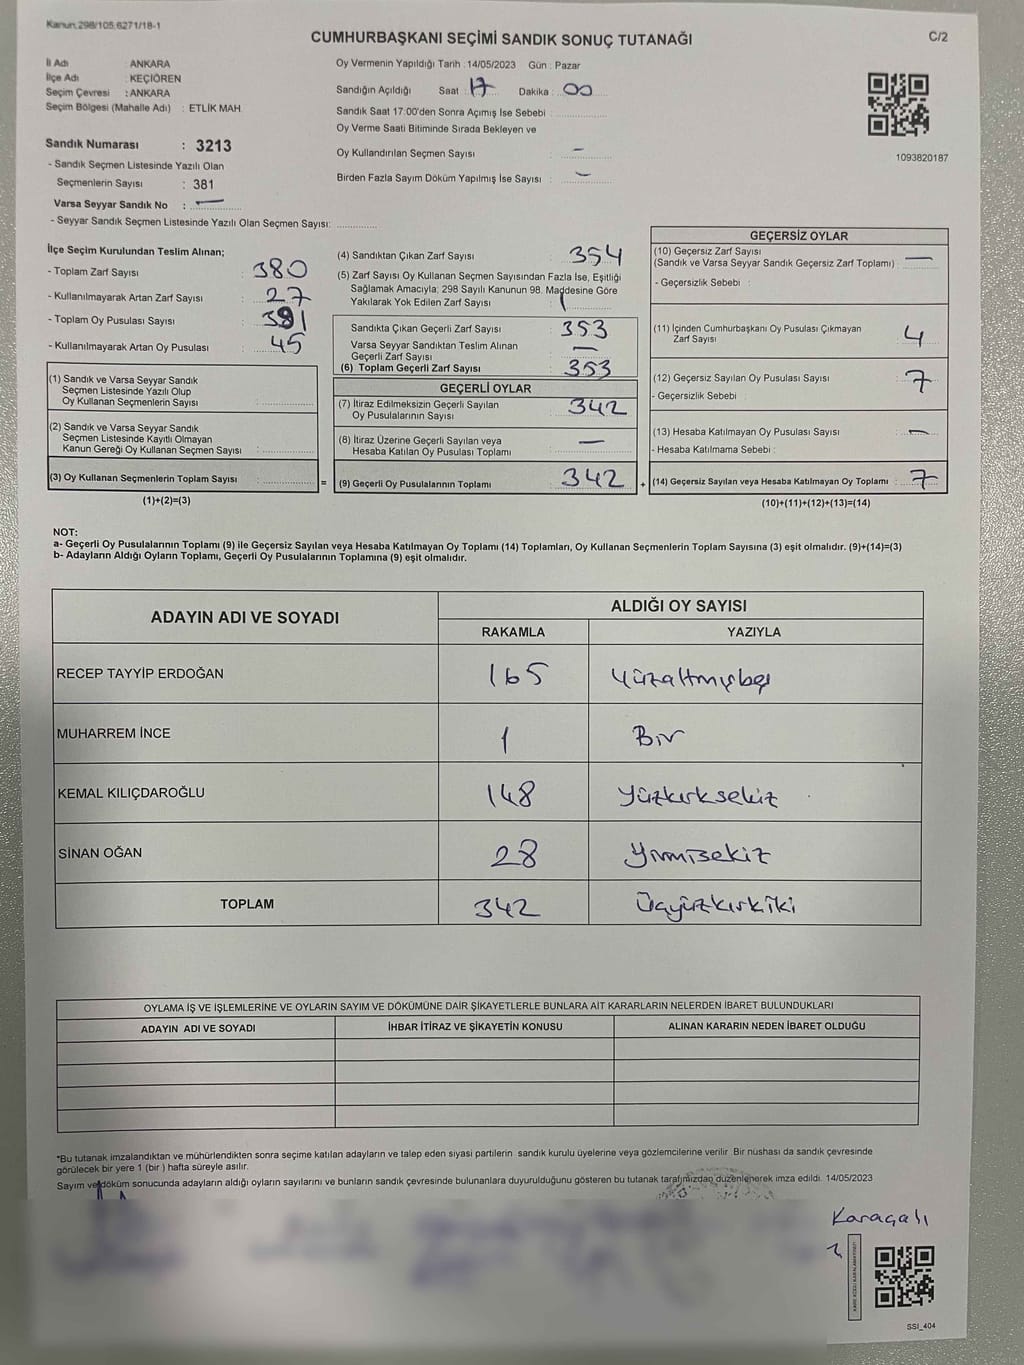 Kanun:298/105;6271/18-1
CUMHURBAŞKANI SEÇİMİ SANDIK SONUÇ TUTANAĞI
C/2
İl Adı : ANKARA
İlçe Adı : KEÇİÖREN
Seçim Çevresi : ANKARA
Seçim Bölgesi (Mahalle Adı) : ETLİK MAH.
Sandık Numarası : 3213
- Sandık Seçmen Listesinde Yazılı Olan
Seçmenlerin Sayısı : 381
Varsa Seyyar Sandık No : —
- Seyyar Sandık Seçmen Listesinde Yazılı Olan Seçmen Sayısı:
Oy Vermenin Yapıldığı Tarih : 14/05/2023 Gün : Pazar
Sandığın Açıldığı Saat : 17 Dakika : 00
Sandık Saat 17:00'den Sonra Açımış İse Sebebi :
Oy Verme Saati Bitiminde Sırada Bekleyen ve
Oy Kullandırılan Seçmen Sayısı : —
Birden Fazla Sayım Döküm Yapılmış İse Sayısı : —
1093820187
İlçe Seçim Kurulundan Teslim Alınan;
- Toplam Zarf Sayısı : 380
- Kullanılmayarak Artan Zarf Sayısı : 27
- Toplam Oy Pusulası Sayısı : 391
- Kullanılmayarak Artan Oy Pusulası : 45
(1) Sandık ve Varsa Seyyar Sandık
Seçmen Listesinde Yazılı Olup
Oy Kullanan Seçmenlerin Sayısı :
(2) Sandık ve Varsa Seyyar Sandık
Seçmen Listesinde Kayıtlı Olmayan
Kanun Gereği Oy Kullanan Seçmen Sayısı :
(3) Oy Kullanan Seçmenlerin Toplam Sayısı :
(1)+(2)=(3)
(4) Sandıktan Çıkan Zarf Sayısı : 354
(5) Zarf Sayısı Oy Kullanan Seçmen Sayısından Fazla İse, Eşitliği
Sağlamak Amacıyla; 298 Sayılı Kanunun 98. Maddesine Göre
Yakılarak Yok Edilen Zarf Sayısı : 1
Sandıkta Çıkan Geçerli Zarf Sayısı : 353
Varsa Seyyar Sandıktan Teslim Alınan
Geçerli Zarf Sayısı : —
(6) Toplam Geçerli Zarf Sayısı : 353
GEÇERLİ OYLAR
(7) İtiraz Edilmeksizin Geçerli Sayılan
Oy Pusulalarının Sayısı : 342
(8) İtiraz Üzerine Geçerli Sayılan veya
Hesaba Katılan Oy Pusulası Toplamı : —
= (9) Geçerli Oy Pusulalarının Toplamı : 342 +
GEÇERSİZ OYLAR
(10) Geçersiz Zarf Sayısı
(Sandık ve Varsa Seyyar Sandık Geçersiz Zarf Toplamı) : —
- Geçersizlik Sebebi :
(11) İçinden Cumhurbaşkanı Oy Pusulası Çıkmayan
Zarf Sayısı : 4
(12) Geçersiz Sayılan Oy Pusulası Sayısı : 7
- Geçersizlik Sebebi :
(13) Hesaba Katılmayan Oy Pusulası Sayısı : —
- Hesaba Katılmama Sebebi :
(14) Geçersiz Sayılan veya Hesaba Katılmayan Oy Toplamı : 7
(10)+(11)+(12)+(13)=(14)
NOT:
a- Geçerli Oy Pusulalarının Toplamı (9) ile Geçersiz Sayılan veya Hesaba Katılmayan Oy Toplamı (14) Toplamları, Oy Kullanan Seçmenlerin Toplam Sayısına (3) eşit olmalıdır. (9)+(14)=(3)
b- Adayların Aldığı Oyların Toplamı, Geçerli Oy Pusulalarının Toplamına (9) eşit olmalıdır.
ADAYIN ADI VE SOYADI ALDIĞI OY SAYISI
RAKAMLA YAZIYLA
RECEP TAYYİP ERDOĞAN 165 Yüzaltmışbeş
MUHARREM İNCE 1 Bir
KEMAL KILIÇDAROĞLU 148 Yüzkırksekiz
SİNAN OĞAN 28 Yirmisekiz
TOPLAM 342 Üçyüzkırkiki
OYLAMA İŞ VE İŞLEMLERİNE VE OYLARIN SAYIM VE DÖKÜMÜNE DAİR ŞİKAYETLERLE BUNLARA AİT KARARLARIN NELERDEN İBARET BULUNDUKLARI
ADAYIN ADI VE SOYADI İHBAR İTİRAZ VE ŞİKAYETİN KONUSU ALINAN KARARIN NEDEN İBARET OLDUĞU
*Bu tutanak imzalandıktan ve mühürlendikten sonra seçime katılan adayların ve talep eden siyasi partilerin sandık kurulu üyelerine veya gözlemcilerine verilir. Bir nüshası da sandık çevresinde
görülecek bir yere 1 (bir ) hafta süreyle asılır.
Sayım ve döküm sonucunda adayların aldığı oyların sayılarını ve bunların sandık çevresinde bulunanlara duyurulduğunu gösteren bu tutanak tarafımızdan düzenlenerek imza edildi. 14/05/2023
Karaçalı
SSI_404